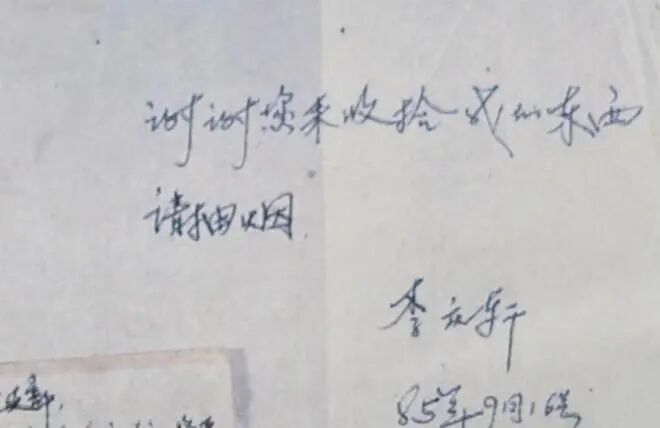 谢谢您来收拾我的东西
请抽烟
李立轩
85年9月16号